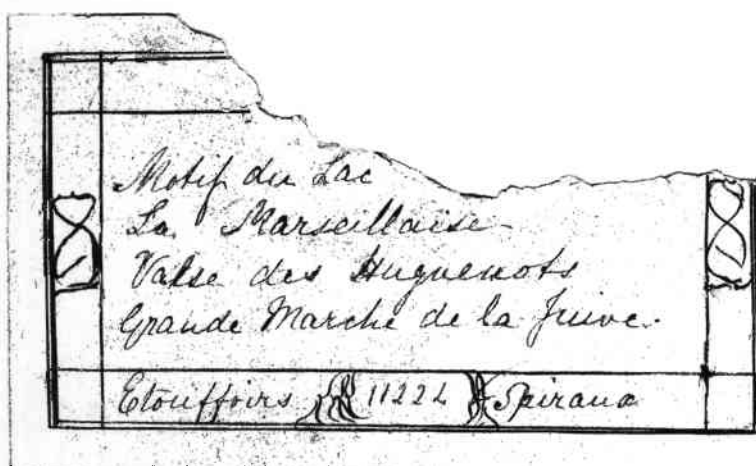 Motif du Lac
La Marseillaise
Valse des Huguenots
Grande Marche de la Juive.
Etouffoirs 11222 Spiraux